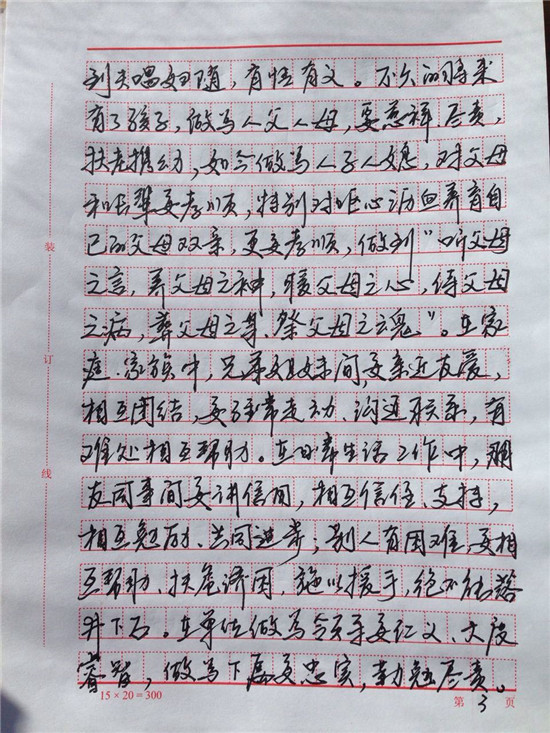 到夫唱妇随，有情有义。不久的将来
有了孩子，做为人父人母，要慈祥、尽责，
扶老携幼，如今做为人子人媳，对父母
和长辈要孝顺，特别对呕心沥血养育自
己的父母双亲，更要孝顺，做到“听父母
之言，养父母之神，暖父母之心，侍父母
之病，葬父母之身、祭父母之魂”。在家
庭、家族中，兄弟姐妹间，要亲近友爱，
相互团结，要经常走动、沟通联系，有
难处相互帮助。在日常生活工作中，朋
友同事间要讲信用，相互信任、支持，
相互勉励、共同进步；别人有困难，要相
互帮助、扶危济困，施以援手，绝不能落
井下石。在单位做为领导要仁义、大度
睿智，做为下属要忠实，勤勉尽责。
装
订
线
15×20=300
第 3 页